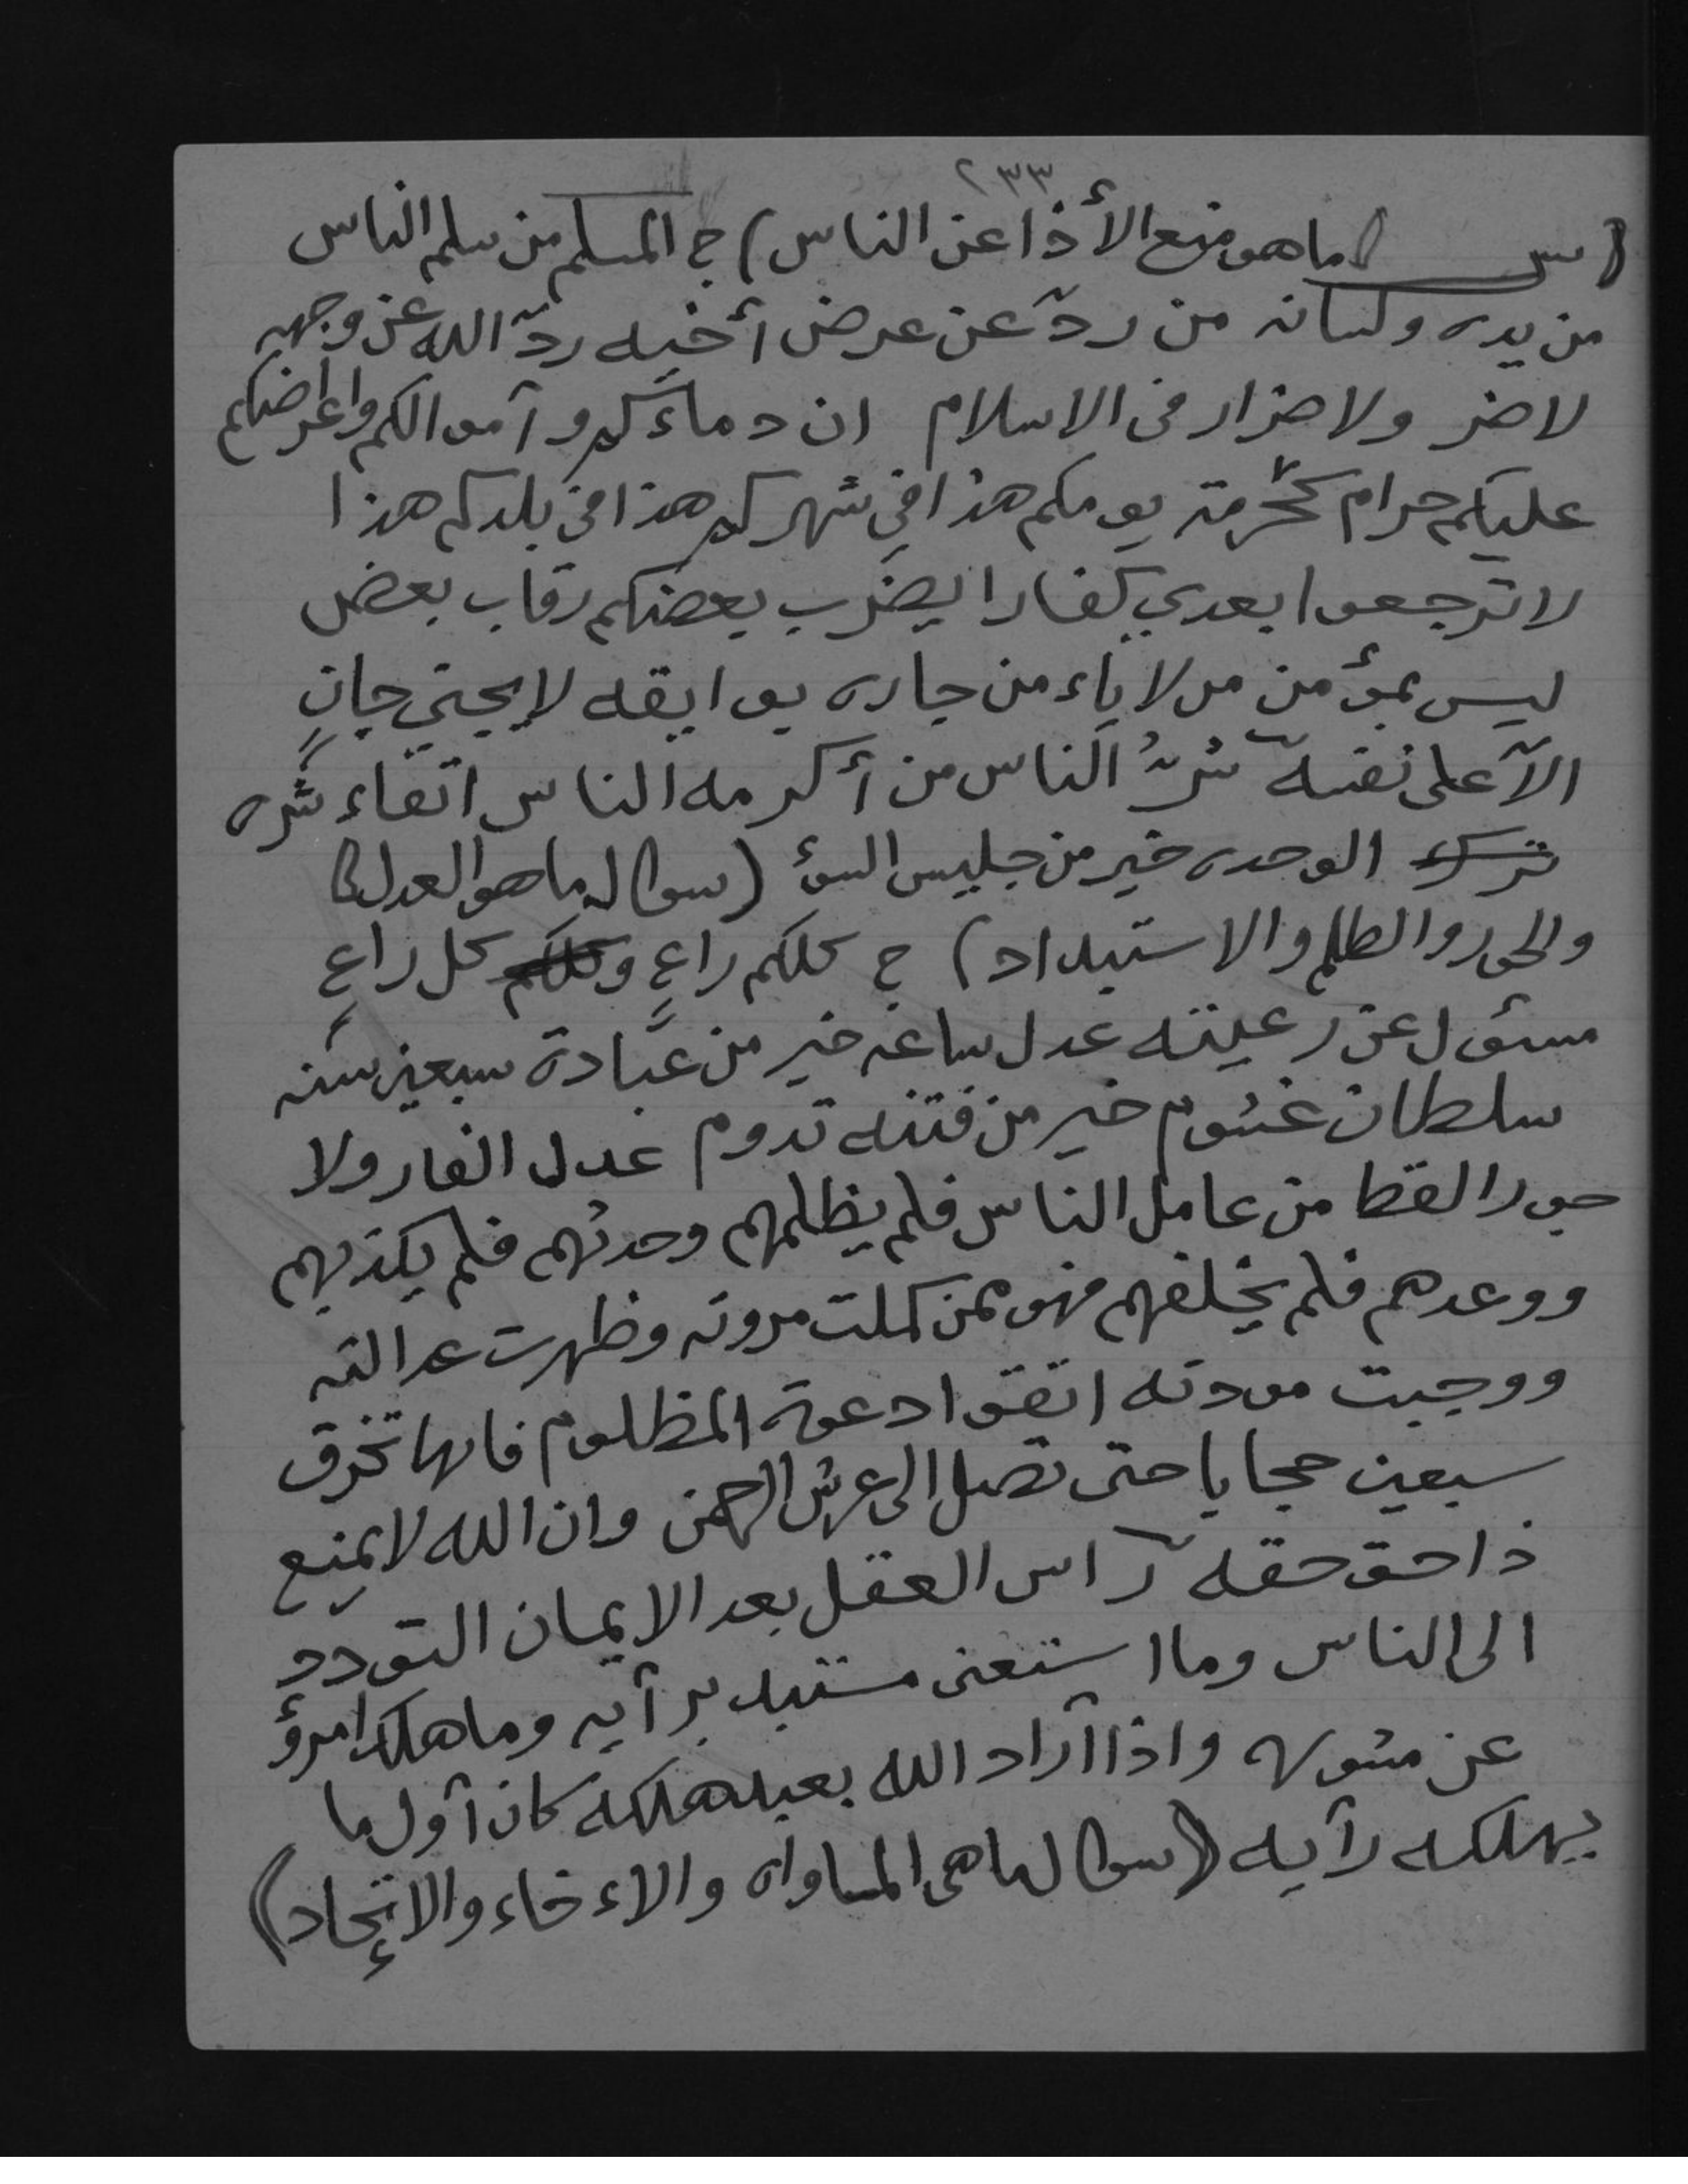 ٢٣٣
(س) ما هو منع الأذا عن الناس) ج المسلم من سلم الناس
من يده ولسانه من ردّ عن عرض أخيه ردّ الله عن وجهه
لا ضر ولا ضرار في الاسلام ان دماءكم وآموالكم واعراضكم
عليكم حرام كحُرمة يومكم هذا في شهركم هذا في بلدكم هذا
لا ترجعوا بعدي كفارا يضرب بعضكم رقاب بعض
ليس بمؤمن من لا ياء من جاره بوايقه لا يجني جانٍ
الآ على نفسه شرّ الناس من أكرمه الناس اتقاء شره
الوحده خير من جليس السوء (سوال ما هو العدل
والجور والظلم والاستبداد) ج كلكم راعٍ وكلكم كل راعٍ
مسئول عن رعيته عدل ساعه خير من عبادة سبعين سنه
سلطان غشوم خير من فتنه تدوم عدل الفار ولا
جور القط من عامل الناس فلم يظلمهم وحدثهم فلم يكذبهم
ووعدهم فلم يخلفهم فهو ممن كملت مروته وظهرت عدالته
ووجبت مودته اتقوا دعوة المظلوم فانها تخرق
سبعين حجابا حتى تصل الى عرش الرحمن وان الله لا يمنع
ذا حق حقه رآاس العقل بعد الايمان التودد
الى الناس وما استغنى مستبد برآيه وما هلك امرؤ
عن مشوره واذا آراد الله بعبد هلكه كان آول ما
يهلكه رآيه (سوال ما هي المساواه والاءخاء والإتحاد)